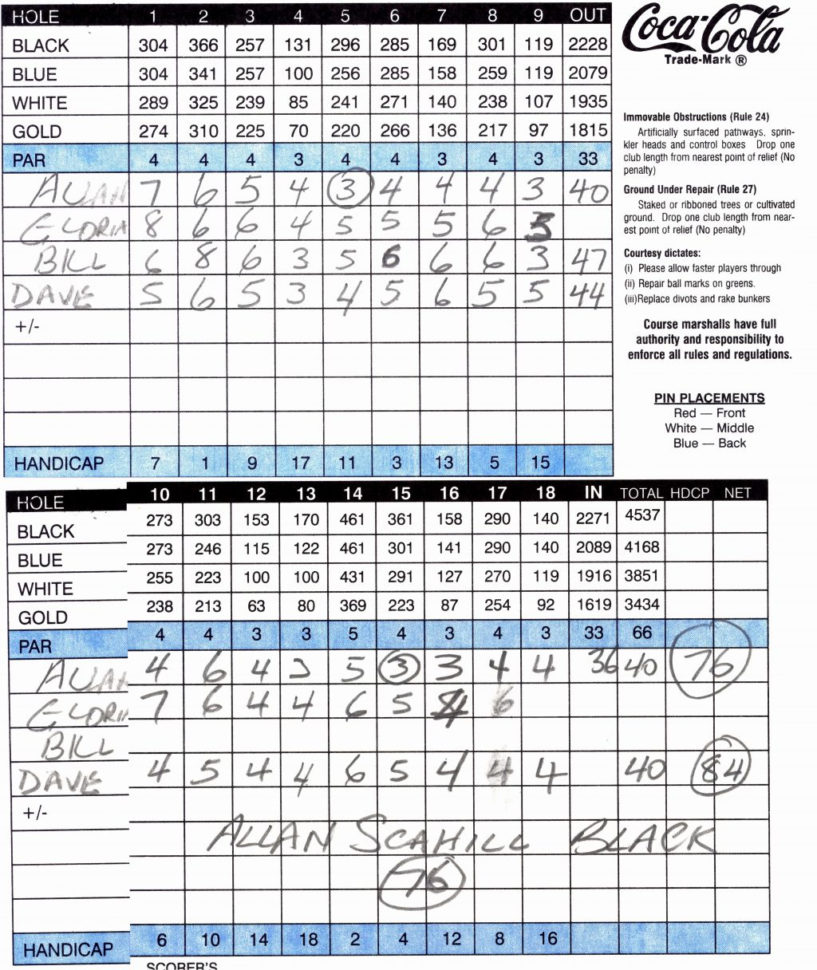 HOLE 1 2 3 4 5 6 7 8 9 OUT
BLACK 304 366 257 131 296 285 169 301 119 2228
BLUE 304 341 257 100 256 285 158 259 119 2079
WHITE 289 325 239 85 241 271 140 238 107 1935
GOLD 274 310 225 70 220 266 136 217 97 1815
PAR 4 4 4 3 4 4 3 4 3 33
ALLAN 7 6 5 4 3 4 4 4 3 40
GLORIA 8 6 6 4 5 5 5 6 5
BILL 6 8 6 3 5 6 6 6 3 47
DAVE 5 6 5 3 4 5 6 5 5 44
+/-
HANDICAP 7 1 9 17 11 3 13 5 15
Coca-Cola
Trade-Mark ®
Immovable Obstructions (Rule 24)
Artificially surfaced pathways, sprin-
kler heads and control boxes Drop one
club length from nearest point of relief (No
penalty)
Ground Under Repair (Rule 27)
Staked or ribboned trees or cultivated
ground. Drop one club length from near-
est point of relief (No penalty)
Courtesy dictates:
(i) Please allow faster players through
(ii) Repair ball marks on greens.
(iii)Replace divots and rake bunkers
Course marshalls have full
authority and responsibility to
enforce all rules and regulations.
PIN PLACEMENTS
Red — Front
White — Middle
Blue — Back
HOLE 10 11 12 13 14 15 16 17 18 IN TOTAL HDCP NET
BLACK 273 303 153 170 461 361 158 290 140 2271 4537
BLUE 273 246 115 122 461 301 141 290 140 2089 4168
WHITE 255 223 100 100 431 291 127 270 119 1916 3851
GOLD 238 213 63 80 369 223 87 254 92 1619 3434
PAR 4 4 3 3 5 4 3 4 3 33 66
ALLAN 4 6 4 3 5 3 3 4 4 36 40 76
GLORIA 7 6 4 4 6 5 4 6
BILL
DAVE 4 5 4 4 6 5 4 4 4 40 84
+/-
ALLAN SCAHILL BLACK
76
HANDICAP 6 10 14 18 2 4 12 8 16
SCORER'S